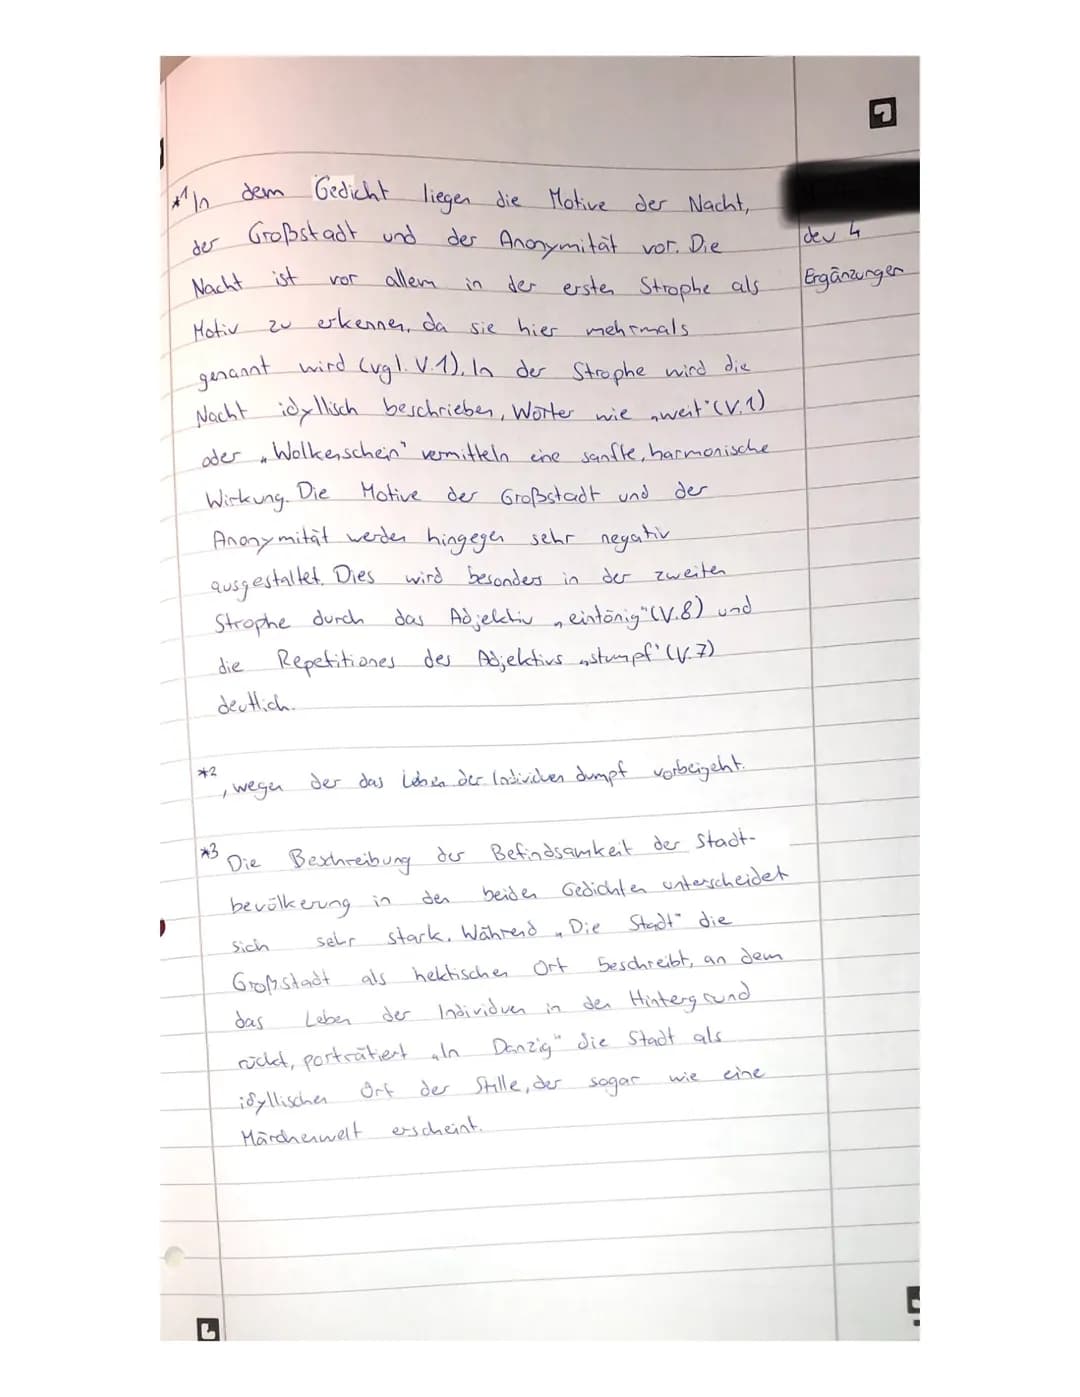 *1 In dem Gedicht liegen die Motive der Nacht,
der Großstadt und der Anonymität vor. Die
deu 4
Nacht ist vor allem in der ersten Strophe als
Ergänzungen
Motiv zu erkennen, da sie hier mehrmals
genannt wird (vgl. V.1). In der Strophe wird die
Nacht idyllisch beschrieben, Wörter wie „weit" (V.1)
oder „Wolkenschein" vermitteln eine sanfte, harmonische
Wirkung. Die Motive der Großstadt und der
Anonymität werden hingegen sehr negativ
ausgestaltet. Dies wird besonders in der zweiten
Strophe durch das Adjektiv „eintönig" (V.8) und
die Repetitiones des Adjektivs „stumpf" (V.7)
deutlich.
*2
, wegen der das Leben der Individuen dumpf vorbeigeht.
*3 Die Beschreibung der Befindsamkeit der Stadt-
bevölkerung in den beiden Gedichten unterscheidet
sich sehr stark. Während „Die Stadt" die
Großstadt als hektischen Ort beschreibt, an dem
das Leben der Individuen in den Hintergrund
rückt, porträtiert „In Danzig" die Stadt als
idyllischen Ort der Stille, der sogar wie eine
Märchenwelt erscheint.